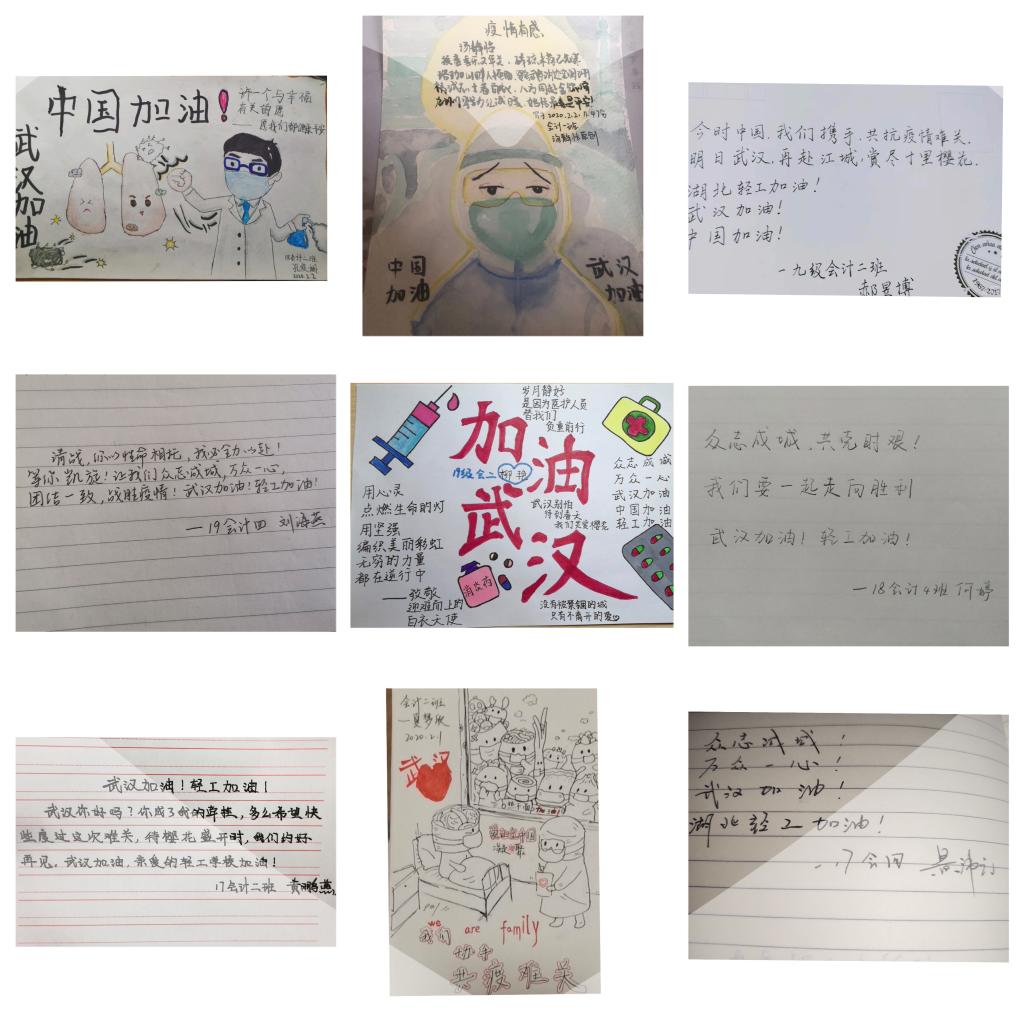 中国加油！
许一个与幸福
有关的愿
武汉加油
18会计二班
2020.2.2
疫情有感
写于2020.2.2.
会计一班
中国
加油
武汉
加油
今时中国，我们携手，共抗疫情难关，
明日武汉，再赴江城，赏尽十里樱花。
湖北轻工加油！
武汉加油！
中国加油！
一九级会计二班
郝昱博
请战，你以性命相托，我必全力以赴！
等你凯旋！让我们众志成城，万众一心，
团结一致，战胜疫情！武汉加油！轻工加油！
—19会计四 刘海燕
岁月静好
是因为医护人员
替我们
负重前行
加油
武汉
18级会二
柳艳
用心灵
点燃生命的灯
用坚强
编织美丽彩虹
无穷的力量
都在逆行中
——致敬
迎难而上的
白衣天使
武汉别怕
待到春天
我们去赏樱花
众志成城
万众一心
武汉加油
中国加油
轻工加油
消炎药
没有被禁锢的城
只有不离开的爱
众志成城，共克时艰！
我们要一起走向胜利
武汉加油！轻工加油！
—18会计4班 何婷
武汉加油！轻工加油！
武汉你好吗？你成了我的牵挂，多么希望快
些度过这次难关，待樱花盛开时，我们约好
再见。武汉加油，亲爱的轻工学校加油！
17会计二班 黄鹏燕
会计二班
—夏梦欣
2020.2.1
武汉
we are family
我们
协手
共疫难关
众志成城！
万众一心！
武汉加油！
湖北轻工加油！
—17会四